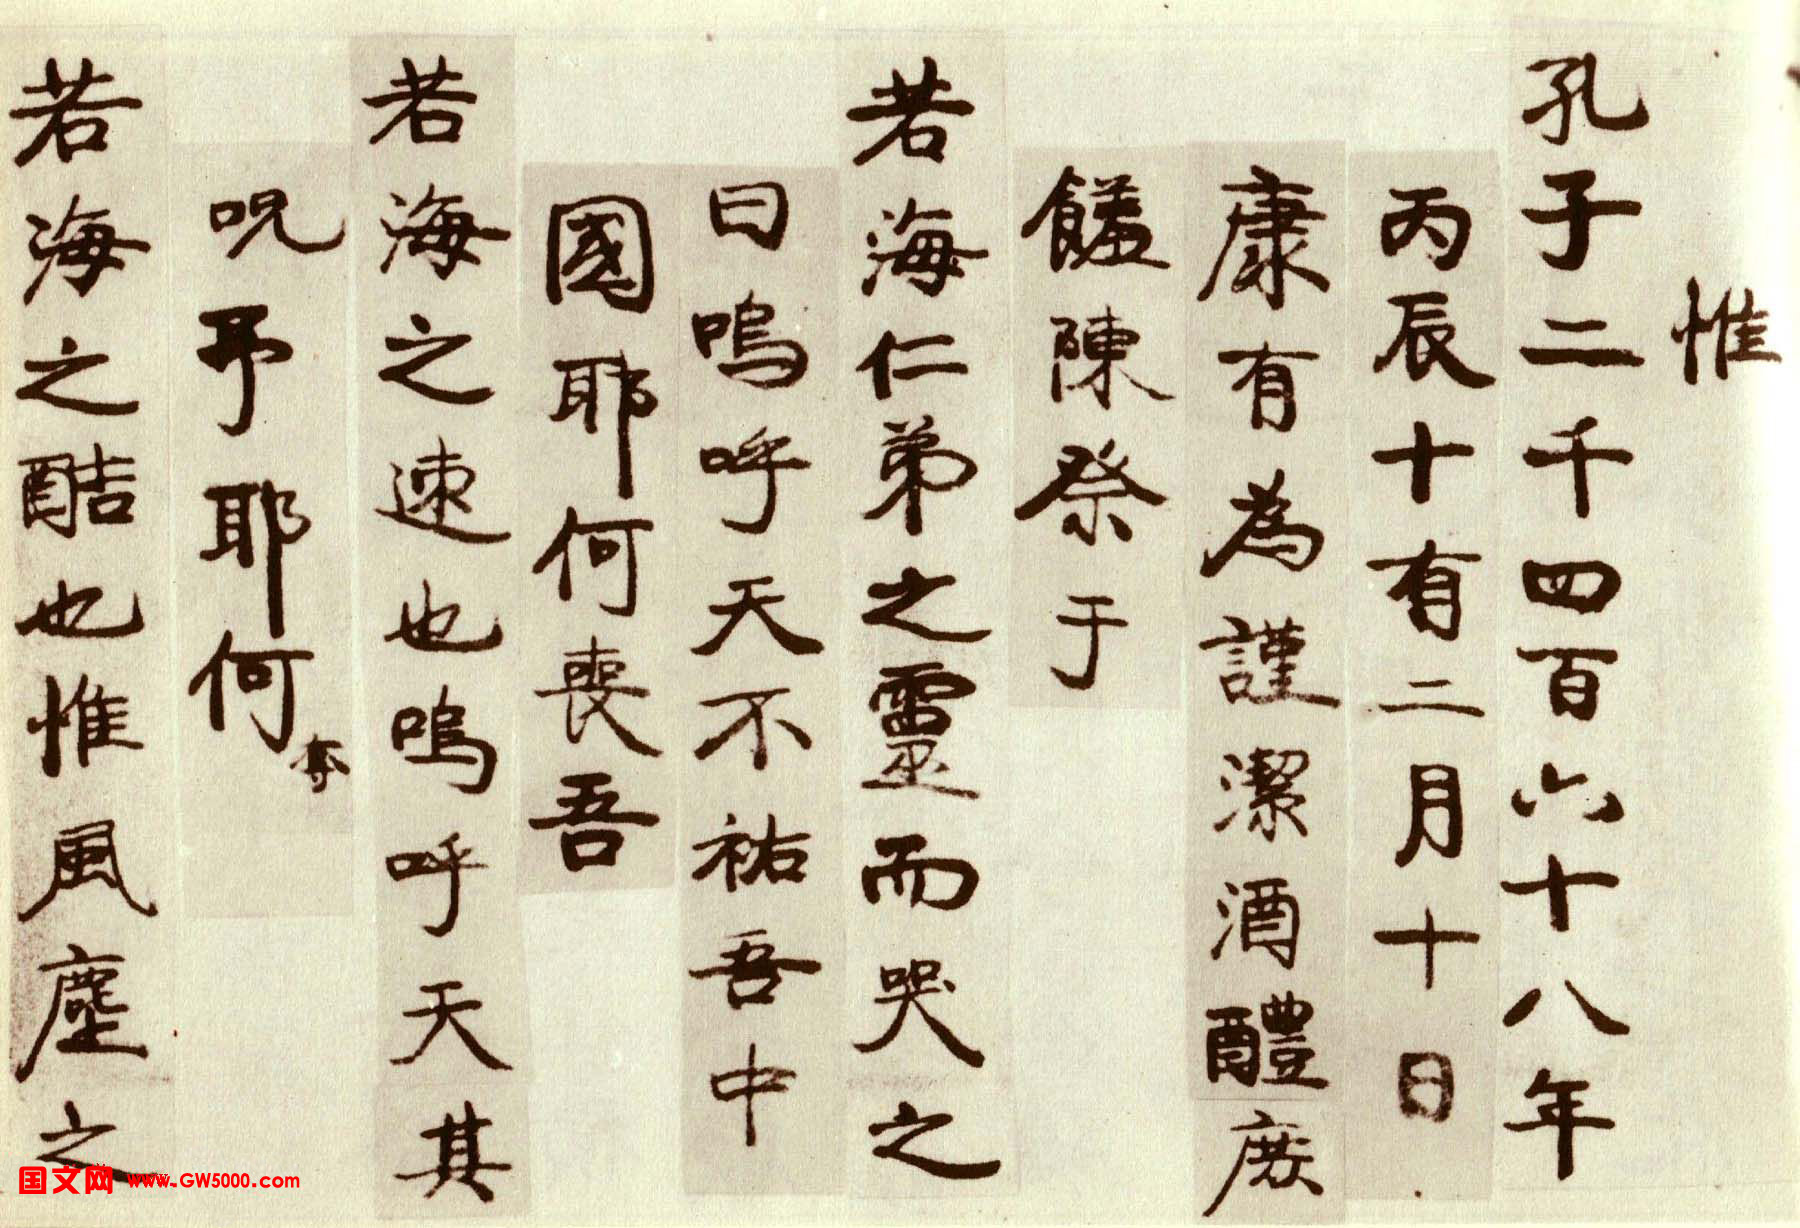 惟
孔子二千四百六十八年
丙辰十有二月十日
康有為謹潔酒醴庶
饈陳祭于
若海仁弟之靈而哭之
曰嗚呼天不祐吾中
國耶何喪吾
若海之速也嗚呼天其
呪予耶何夺
若海之酷也惟風塵之
国文网 www.GW5000.com